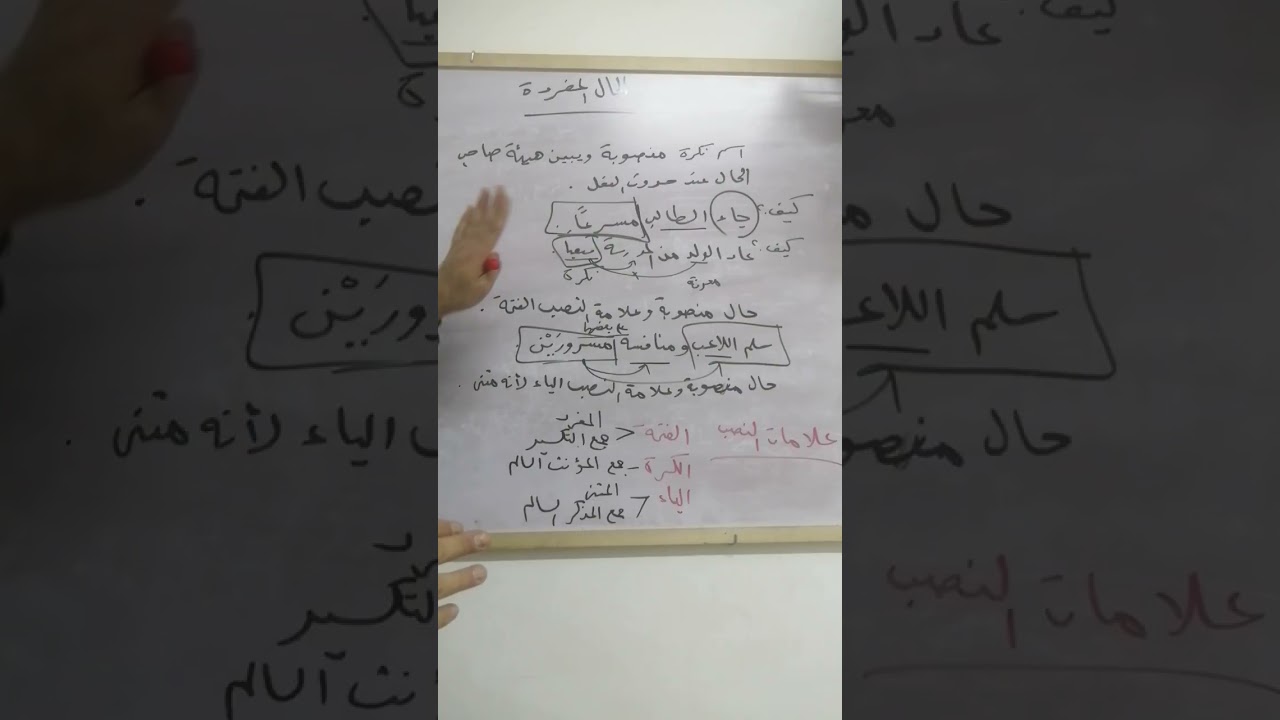 الحال المفردة
اسم نكرة منصوبة ويبين هيئة صاحب
الحال عند حدوث الفعل .
كيف؟ جاء الطالب مسرعًا.
كيف؟ عاد الولد من المدرسة
معرفة نكرة
حال منصوبة وعلامة النصب الفتحة .
سلم اللاعب ومنافسه على بعضهما مسرورَيْن
حال منصوبة وعلامة النصب الياء لأنه مثنى .
علامات النصب
الفتحة < المفرد
جمع التكسير
الكسرة - جمع المؤنث السالم
الياء < المثنى
جمع المذكر السالم